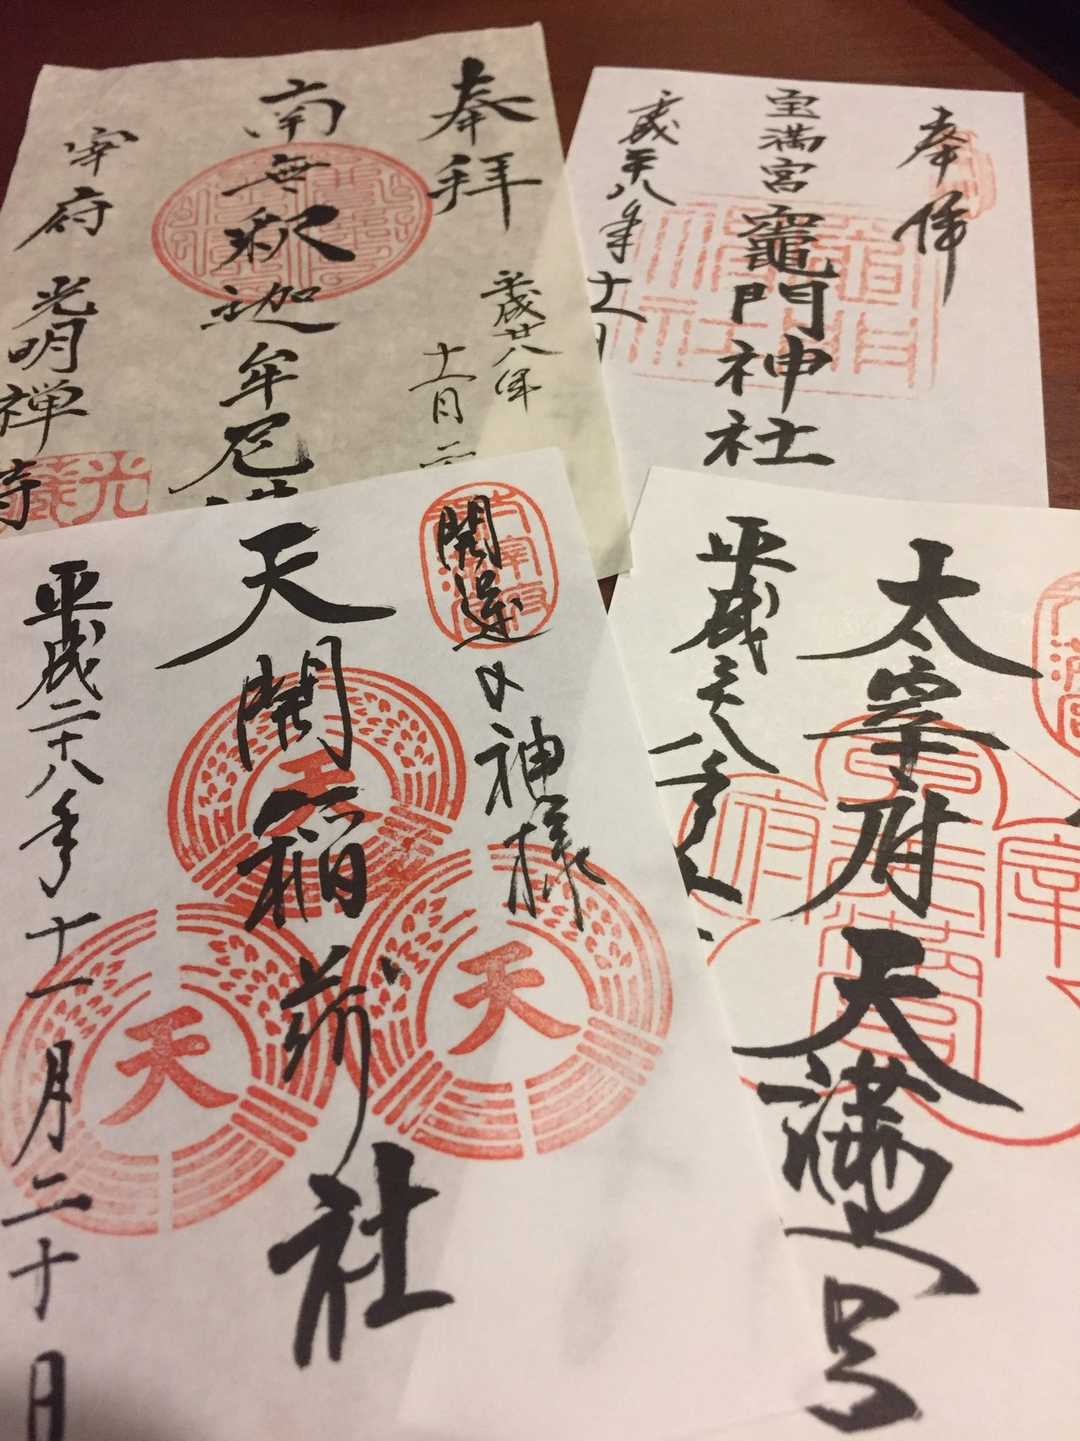 奉拝
平成廿八年
十一月二
南無釈迦牟尼
宰府
光明禅寺
奉拝
宝満宮竈門神社
平成廿八年十一月
開運の神様
天開稲荷社
平成二十八年十一月二十日
天
天
天
太宰府天満宮
平成二十八年